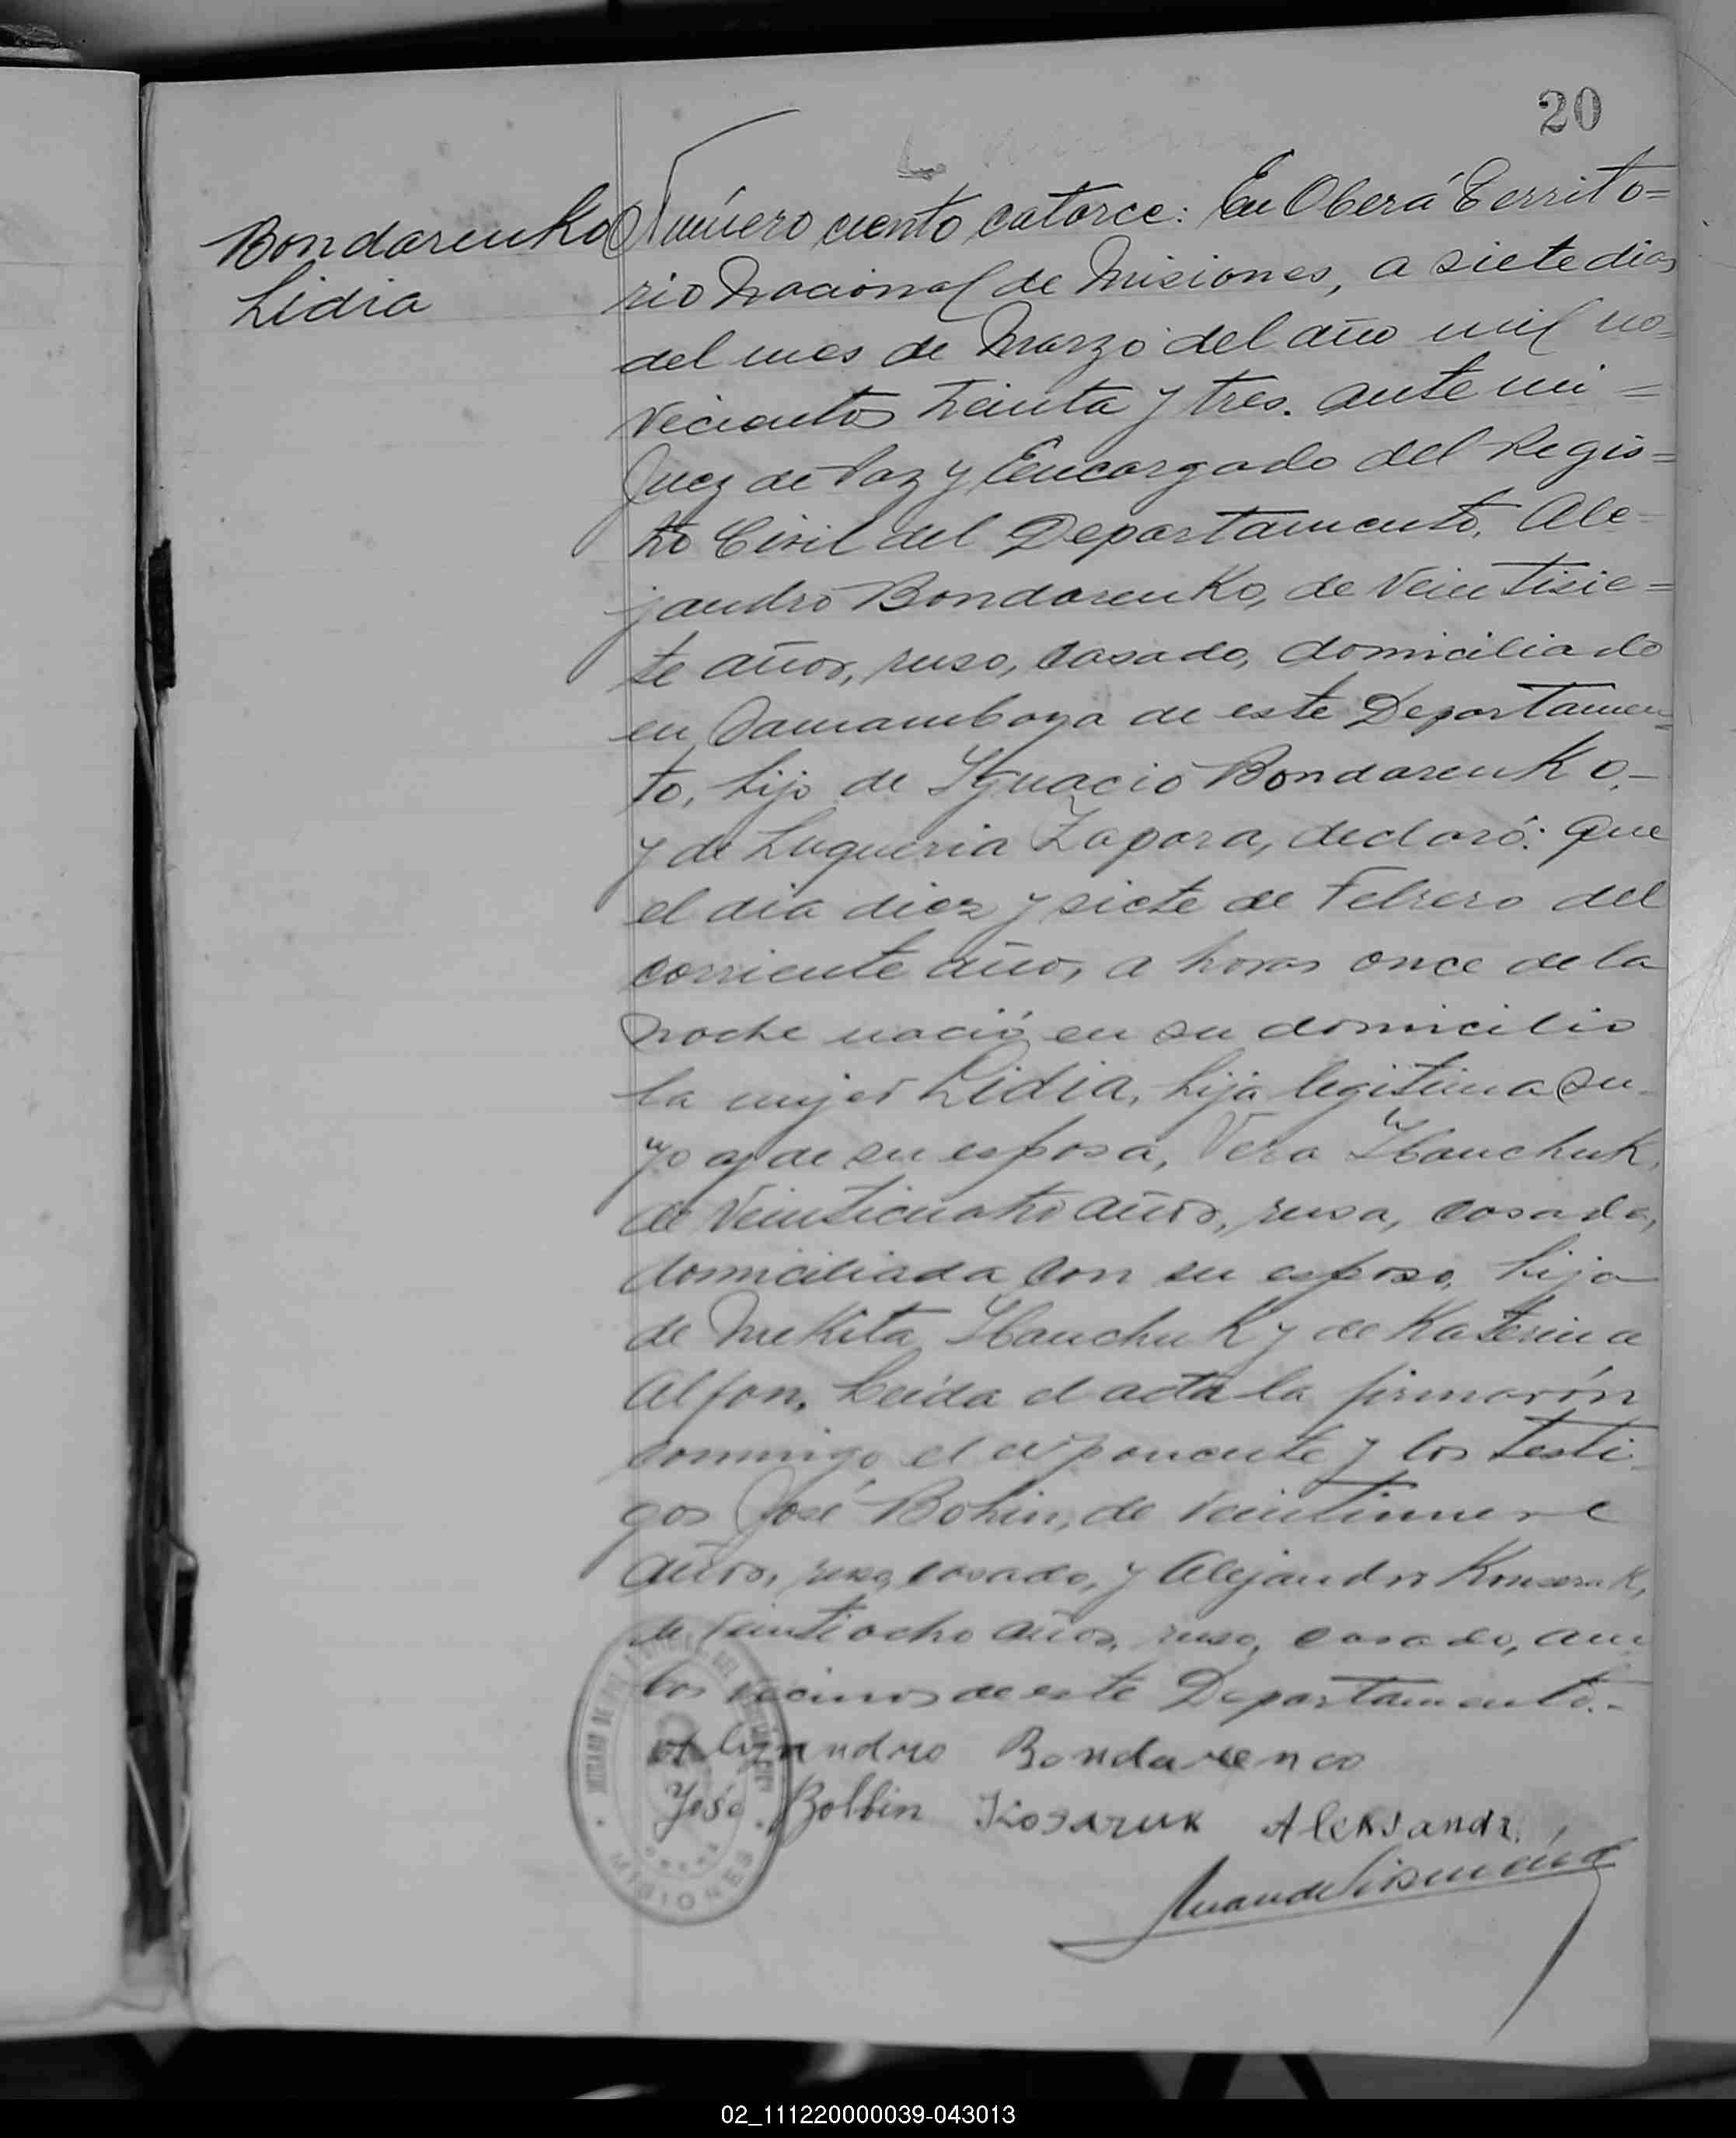 20
Bondarenko
Lidia
Número ciento catorce: En Oberá Territo=
rio Nacional de Misiones, a siete dias
del mes de Marzo del año mil no=
vecientos treinta y tres. ante mi =
Juez de Paz y Encargado del Regis=
tro Civil del Departamento, Ale-
jandro Bondarenko, de veintisie=
te años, ruso, casado, domiciliado
en Samambaya de este Departamen=
to, hijo de Ygnacio Bondarenko,-
y de Luqueria Zapora, declaró: que
el dia diez y siete de Febrero del
corriente año, a horas once de la
noche nació en su domicilio
la mujer Lidia, hija legitima su-
ya y de su esposa, Vera
de veinticuatro años, rusa, casada,
domiciliada con su esposo, hija
de Mekita y de Katerina
Alfon. Leída el acta la firmarón
conmigo el exponente y los testi-
gos José Bohin, de veintinueve
años, ruso, casado, y Alejandro
de veintiocho años, ruso, casado, am
bos vecinos de este Departamento.-
Alejandro Bondarenco
José Bolbin Kosaruk Aleksandr.
MISIONES
02_111220000039-043013